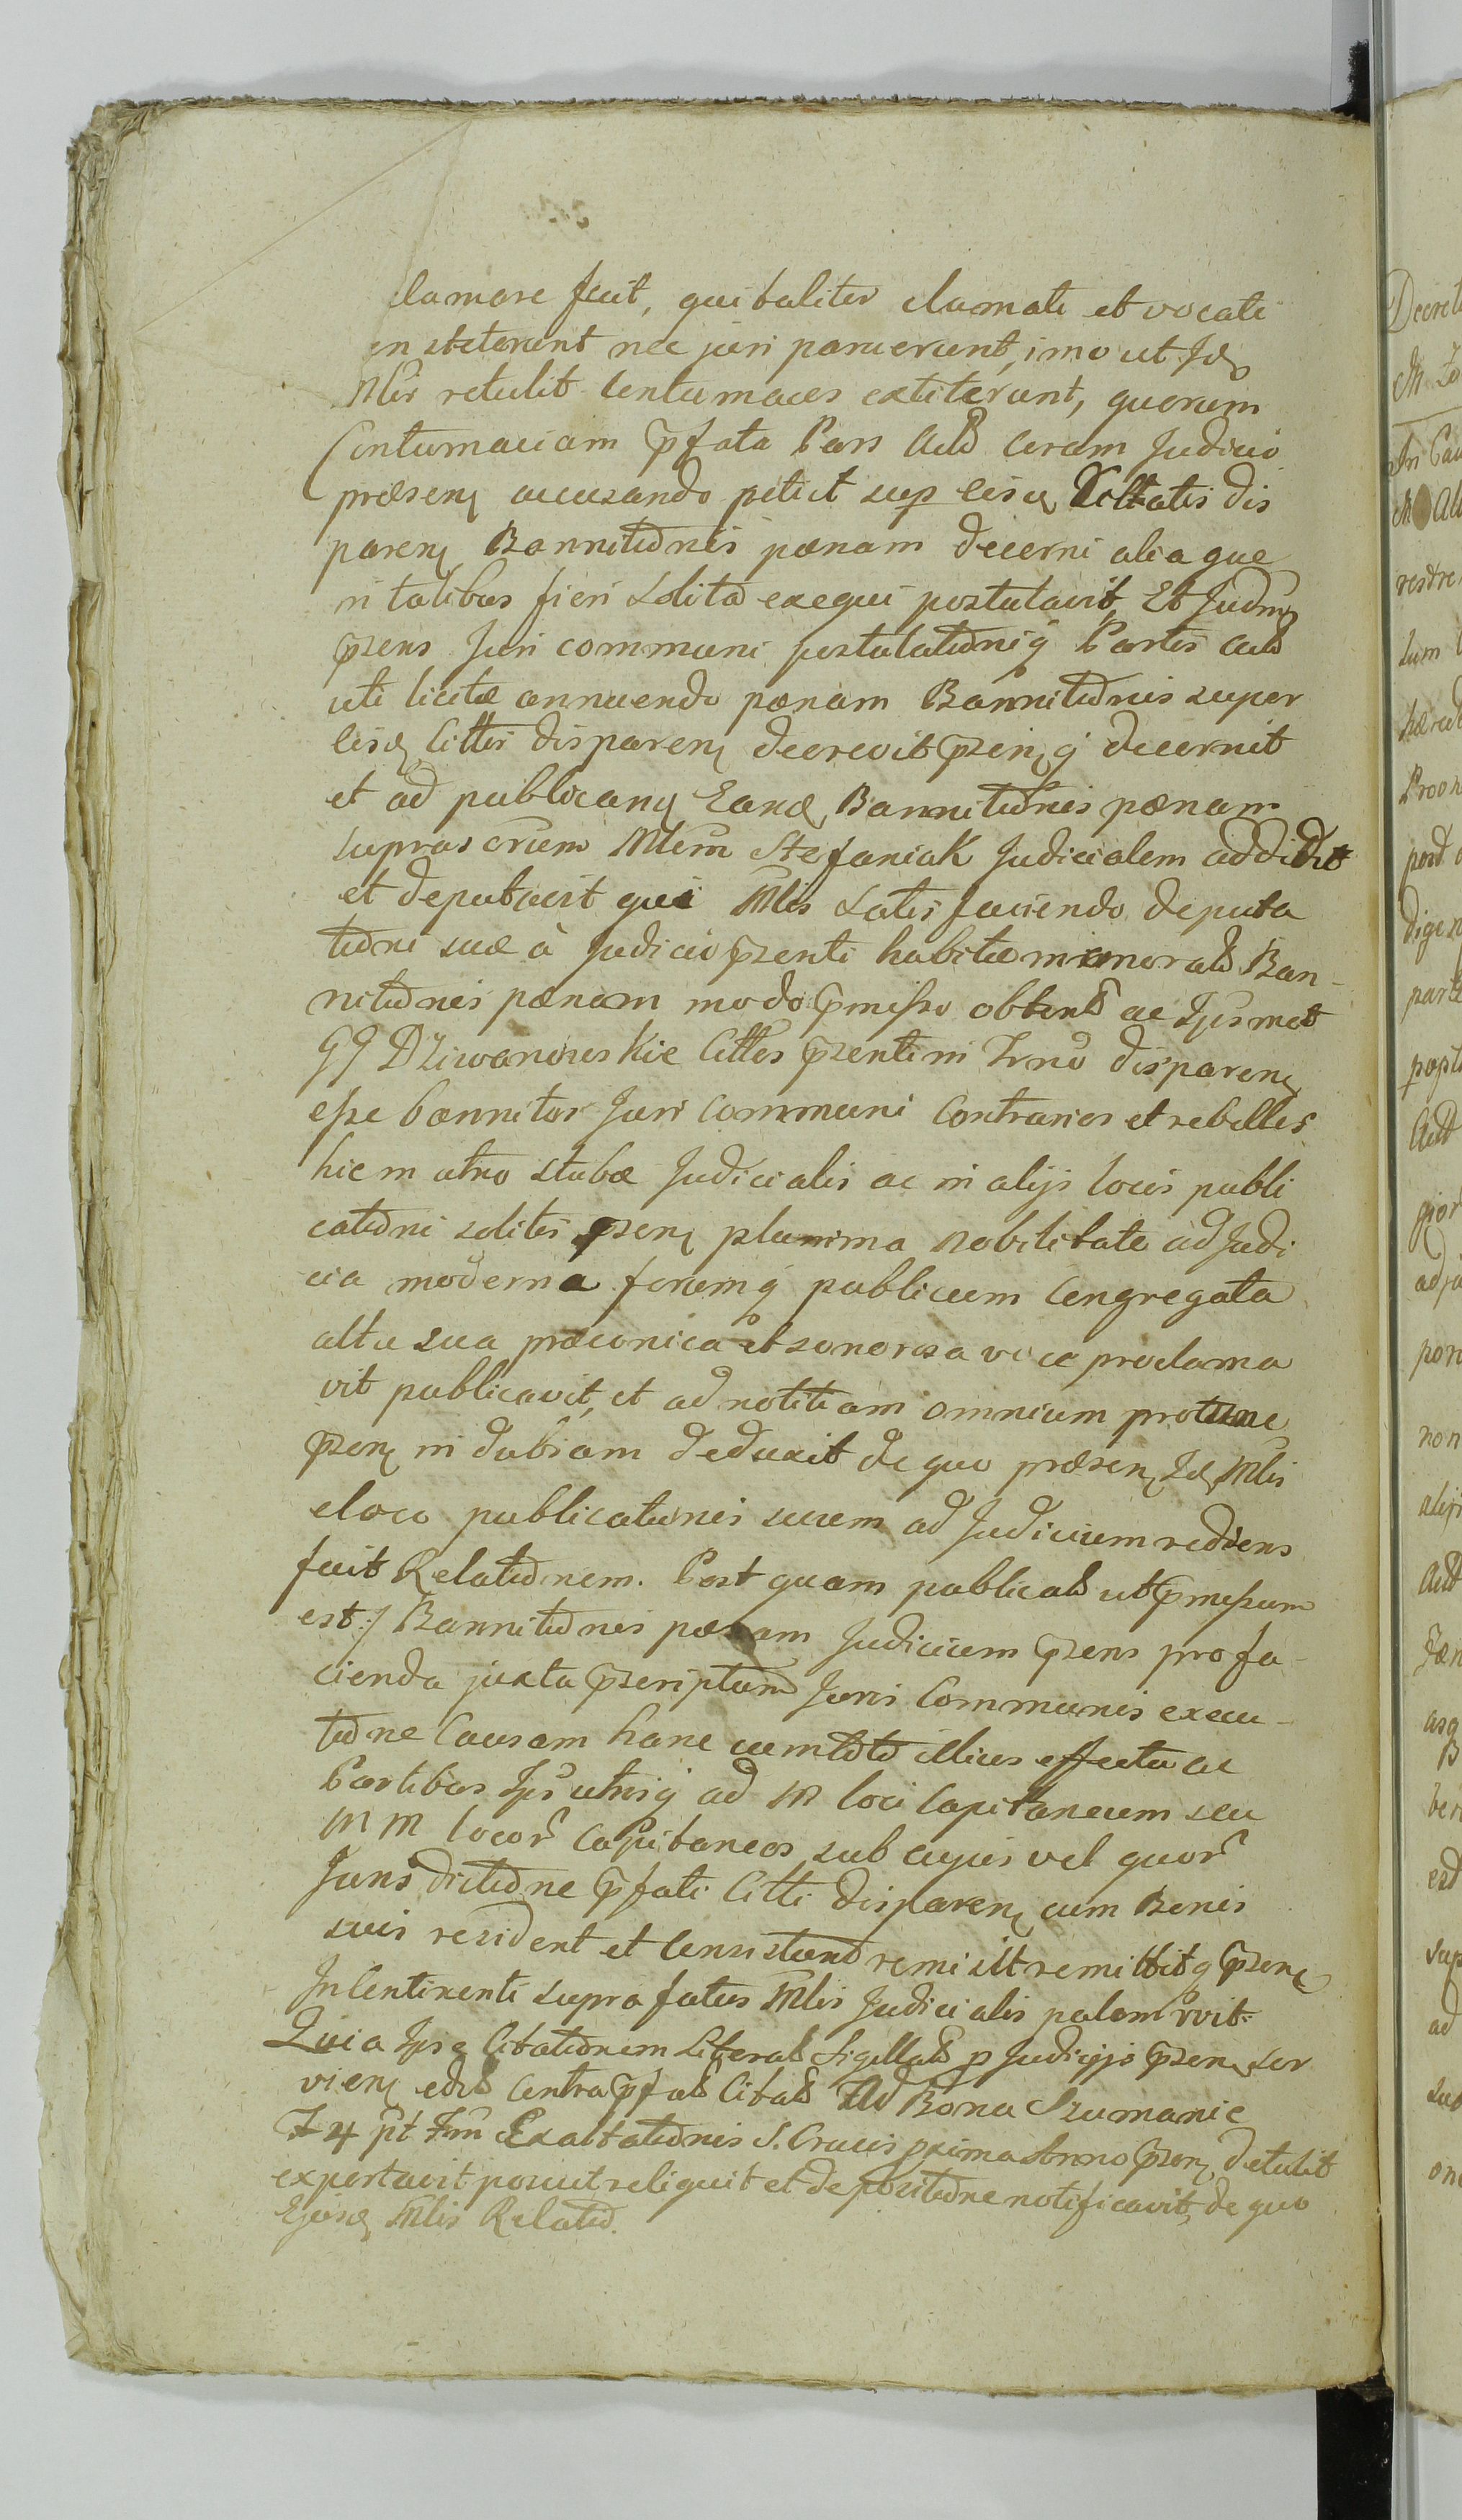 clamare fecit, qui taliter clamati et vocati
on steterunt nec juri paruerunt, imo ut Id
Mlis retulit Contumaces extiterunt, quorum
Contumaciam pfata Pars Actd coram Judicio
præsen accusando petiit sup eisd Cittatis dis
paren Bannitionis pænam decerni aliaque
in talibus fieri solita exequi postulavit, Et Judm
pzens Juri communi postulationiq Partis Actd
uti licitæ annuendo pænam Bannitionis super
eisd Cittis disparen decrevit pzenq decernit
et ad publicand Eand Bannitionis pænam
suprascrum Mlem Stefaniak Judicialem addidit
et deputavit qui Mlis satisfaciendo deputa
tioni suæ à Judicio pzenti habitæ memoratd Ban-
nitionis pænam modo pmisso obtentd ac Ipsmet
GG Dziwanowskie Cittos pzenti in Trno disparen
esse bannitos Juri Communi Contrarios et rebelles
hic in atrio stubæ Judicialis ac in alijs locis publi
cationi solitis pzen plurima Nobilitate ad Judi
cia moderna forumq publicum Congregata
alta sua præconica et sonorosa voce proclama
vit publicavit, et ad notitiam omnium protunc
pzen indubiam deduxit de quo præsen Id Mlis
e loco publicationis suum ad Judicium rediens
fecit Relationem. Post quam publicatd ut pmissum
est :/ Bannitionis pænam Judicium pzens pro fa-
cienda juxta pzcriptum Juris Communis execu-
tione Causam hanc cum toto illius effectu ac
Partibus Ips utrisq ad M loci Capitaneum seu
MM locor Capitaneos sub cujus vel quor
Jurisdictione pfati Citti disparen cum Bonis
suis resident et Consistunt remisit remittitq pzen
In Continenti suprafatus Mlis Judicialis palam rvit
Quia Ipse Citationem Literatd Sigillatd p Judicijs pzen ser
vien edtd Contra pfatd Citatd Ad Bona Szumanie
F 4 pt Fm Exaltationis S. Crucis pxima Anno pzen detulit
exportavit posuit reliquit et de positione notificavit, de quo
Ejusd Mlis Relatio.